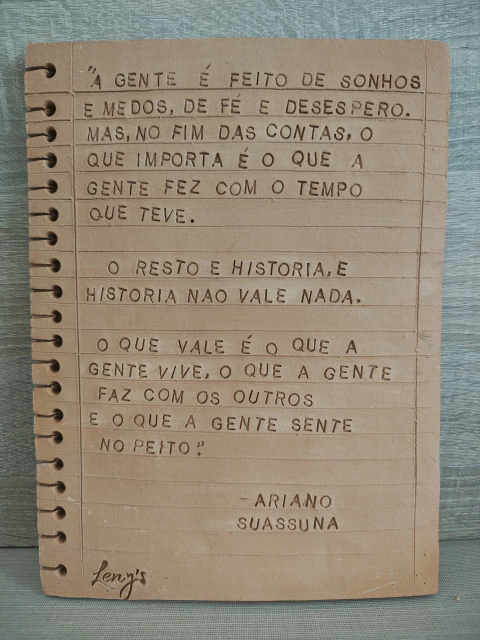 "A GENTE É FEITO DE SONHOS
E MEDOS, DE FÉ E DESESPERO.
MAS, NO FIM DAS CONTAS, O
QUE IMPORTA É O QUE A
GENTE FEZ COM O TEMPO
QUE TEVE.
O RESTO E HISTORIA, E
HISTORIA NAO VALE NADA.
O QUE VALE É O QUE A
GENTE VIVE, O QUE A GENTE
FAZ COM OS OUTROS
E O QUE A GENTE SENTE
NO PEITO."
- ARIANO
SUASSUNA
Leny's